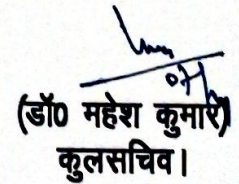 (डॉ0 महेश कुमार)
कुलसचिव।